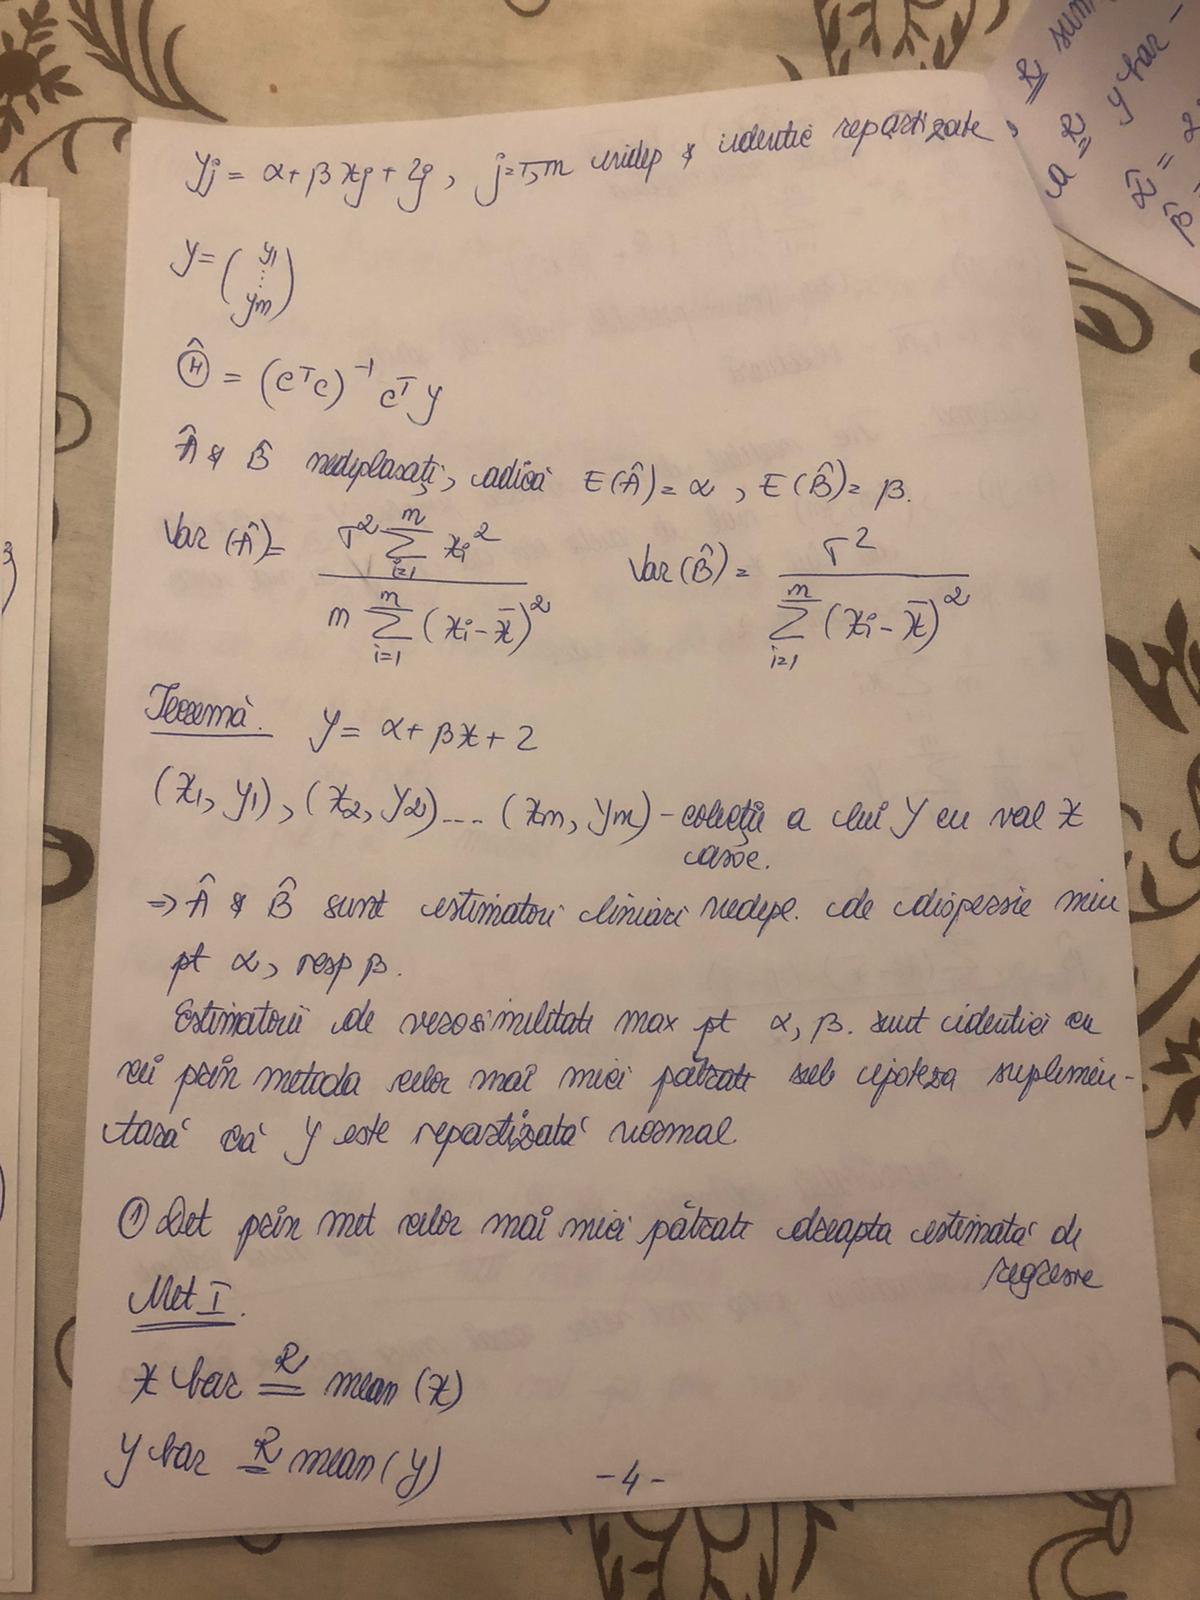 yj = α + βxj + zj, j=1,m indep & identic repartizate,
y = (y1
⋮
ym)
Θ̂ = (cᵀc)⁻¹ cᵀ y
Â & B̂ nedeplasați, adică E(Â) = α, E(B̂) = β.
Var(Â) = σ² ∑_{i=1}^{m} xi² / m ∑_{i=1}^{m} (xi - x̄)² Var(B̂) = σ² / ∑_{i=1}^{m} (xi - x̄)²
Teoremă. y = α + βx + z
(x1, y1), (x2, y2) .... (xm, ym) - colecții a lui Y cu val x
⇒ Â & B̂ sunt estimatori liniari nedepl. de dispersie min
pt α, resp β.
Estimatorii de verosimilitate max pt α, β. sunt identici cu
cei prin metoda celor mai mici pătrate sub ipoteza suplimen-
tară că Y este repartizată normal.
① Det prin met celor mai mici pătrate dreapta estimată de
regresie
Met I.
x bar R= mean (x)
y bar R= mean (y)
-4-
R sum
a R= y bar -
α̂ =
β̂